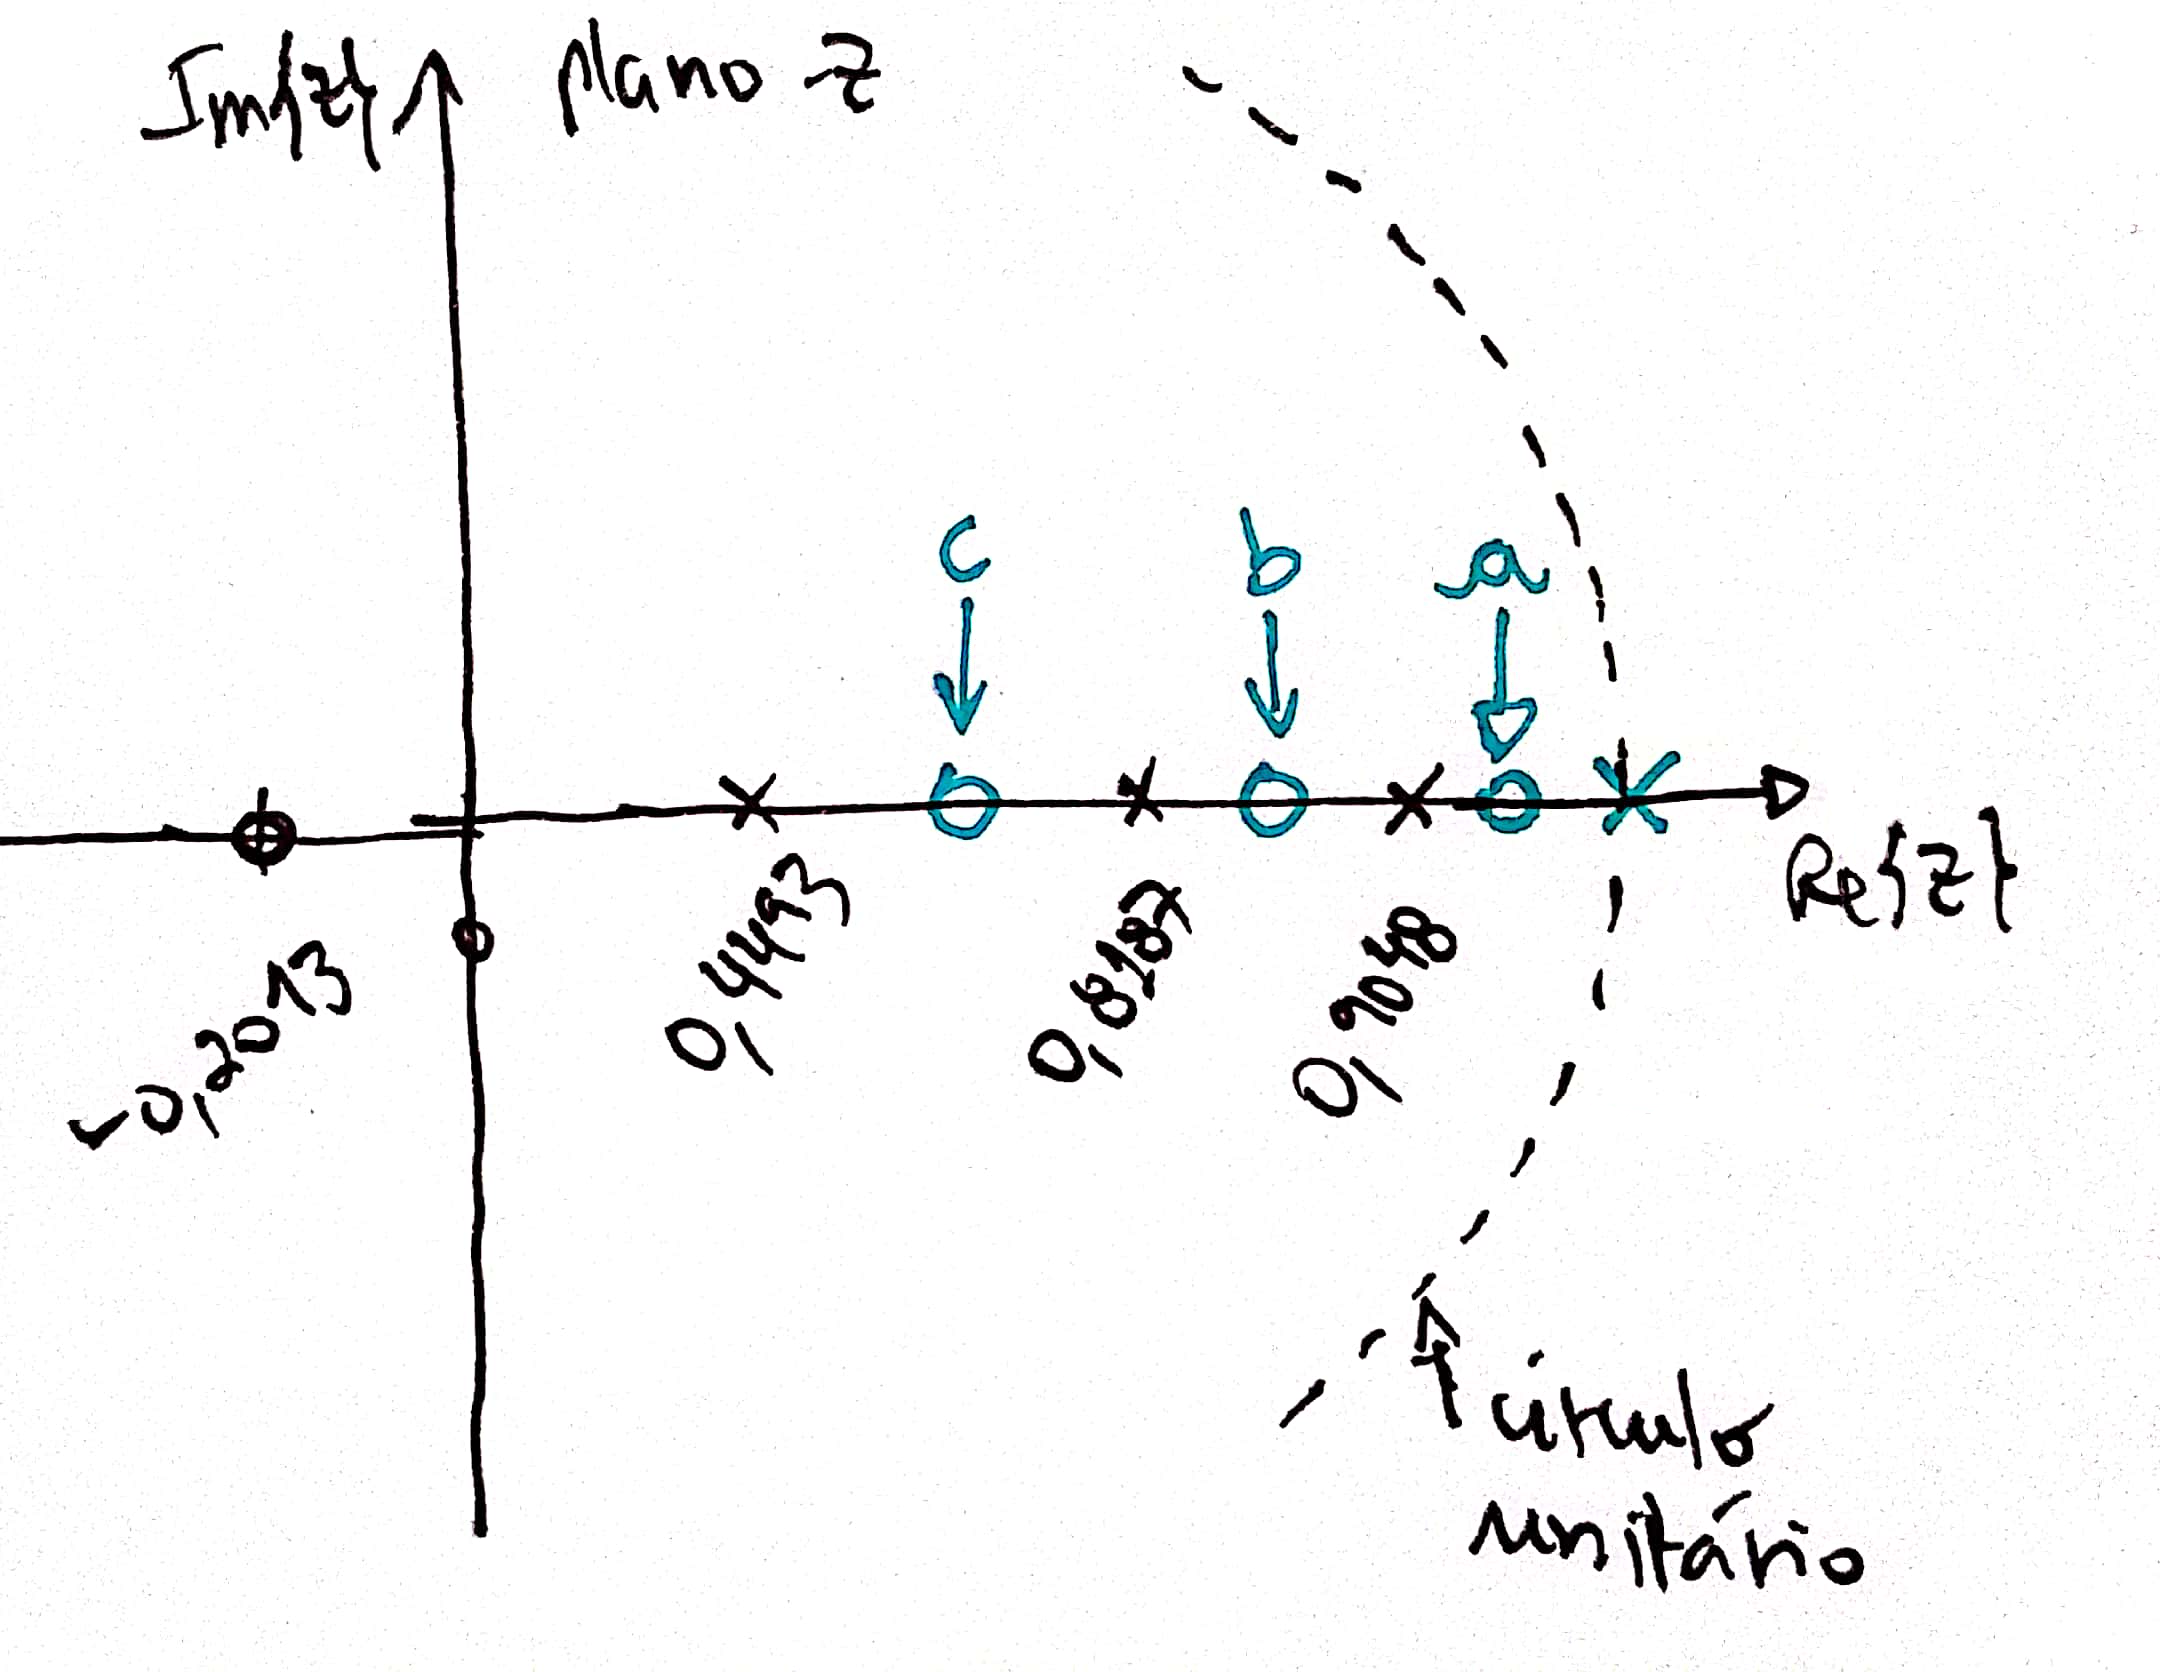 Im{z} Plano z
c b a
Re{z}
-0,2013 0,4493 0,8187 0,9048
0
círculo
unitário